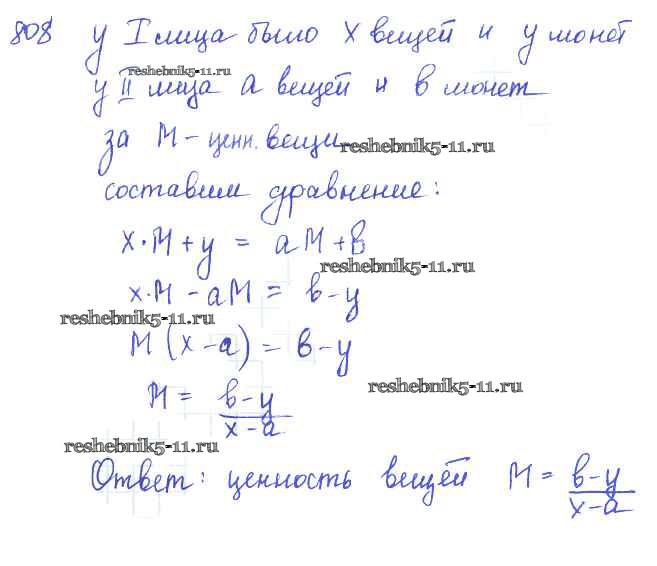 808 у I лица было x вещей и y монет
reshebnik5-11.ru
у II лица a вещей и в монет
за М - ценн. вещи
reshebnik5-11.ru
составим уравнение:
x·М + y = aМ + в
reshebnik5-11.ru
x·М - aМ = в - y
reshebnik5-11.ru
М (x - a) = в - y
reshebnik5-11.ru
М = в - y
x - a
reshebnik5-11.ru
Ответ: ценность вещей М = в - y
x - a